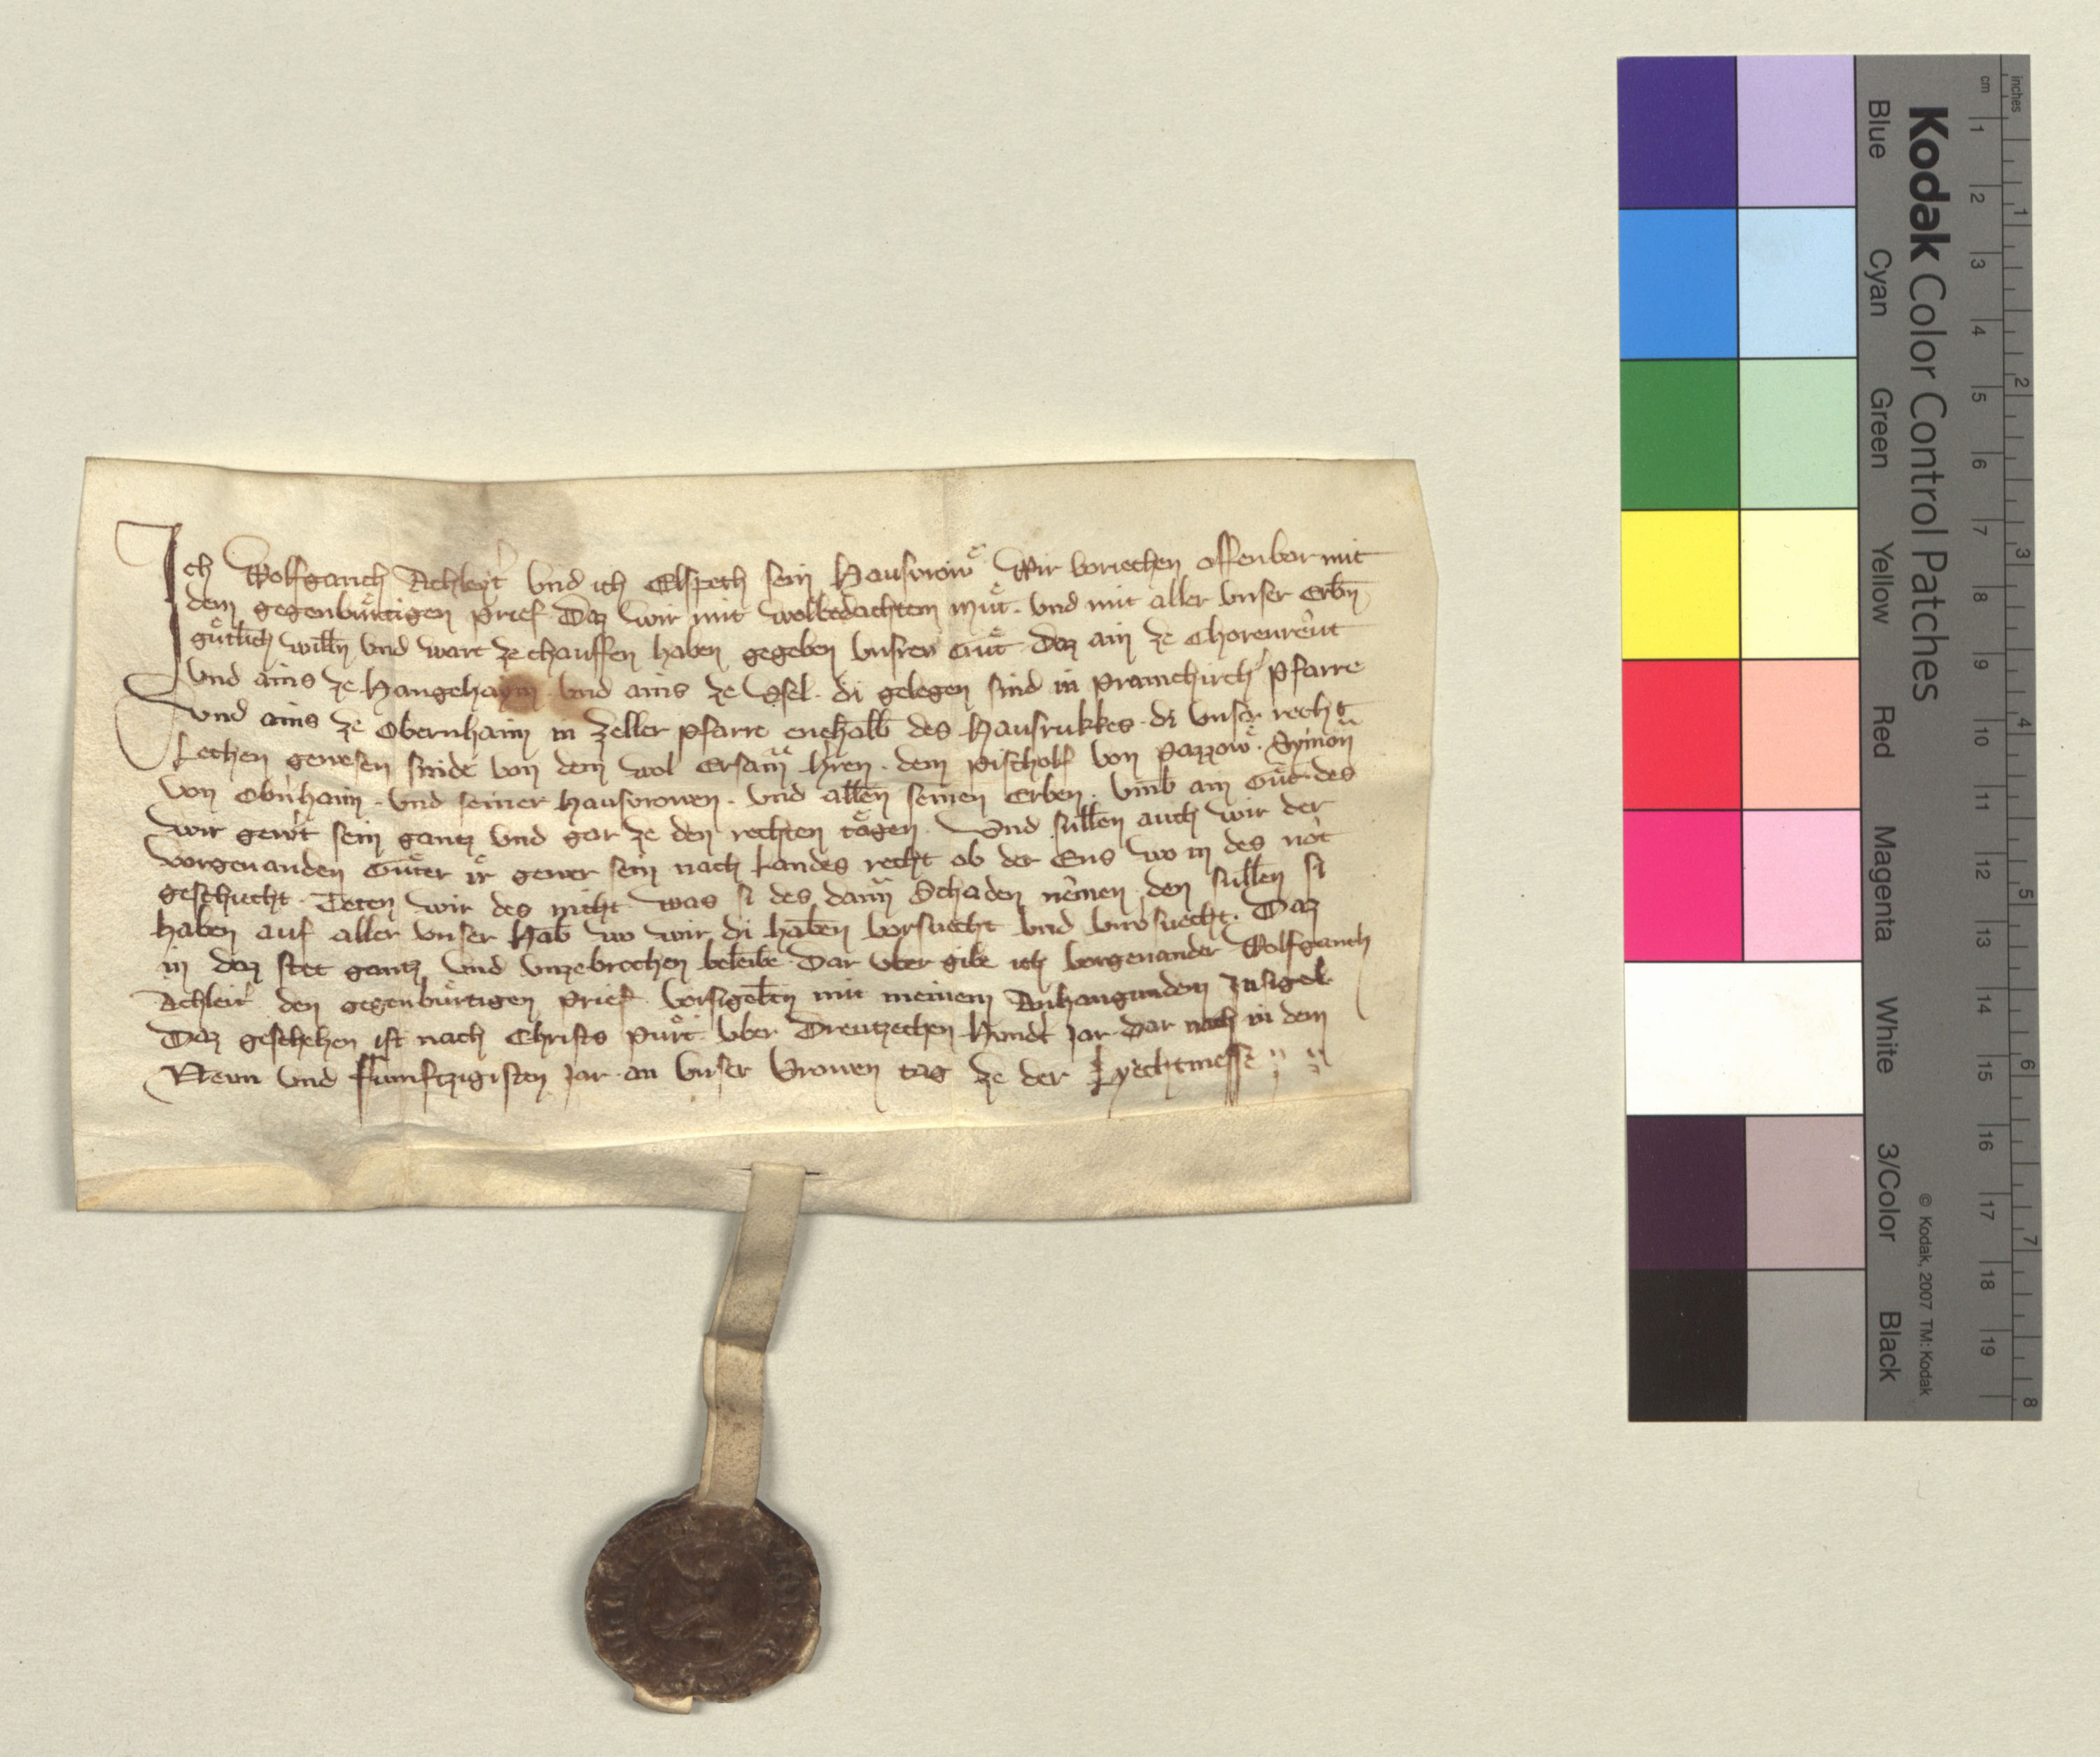 Ich Wolfganch Achleyt' vnd ich Elspeth sein Hausvrowͤ Wir voriechen offenbor mit
dem gegenbuͤrtigen prief Daz wir mit wolbedachtem muͤt · vnd mit aller vnser Erbn̄
guͤtlich willn̄ vnd wart ze chauffen haben gegeben vnsrew Guͤt · Daz ain ze Chorenreut
vnd ains ze Hangehaym vnd ains ze Usel · di gelegen sind in pramchirch' pfarre
vnd ains ze Obernhaim in Zeller pfarre enehalb des Hausrukkes · di vnser recht
Lechen gewesen sinde von dem wol Ersam̄ h'ren · dem pischolf von pazzowͤ · Symon
von Obn'haim · vnd seiner hausvrowen · vnd allen seinen Erben · vmb ain Guͤt · des
wir gew't sein gantz vnd gar ze den rechten taͤgen · Vnd sullen auch wir der
vorgenanden Guͤter ir gewer sein nach Landes recht ob der Ens wo in des not
geschucht · Teten wir des nicht was si des dann Schaden nemen den sullen si
haben auf aller vnser Hab wo wir di haben vorsuecht vnd vnv'suecht · Daz
in daz stet gantz vnd vnzebrochen beleibe · Dar vber gibe ich vorgenander Wolfganch
Achleit' den gegenbuͤrtigen prief vorsigelten mit meinem Anhangunden Insigel
Daz geschehen ist nach Christs puͤrt · vber Dreutzechen Hundt Jar · Dar nach in dem
Neun vnd fumftzigisten Jar · an vnser Vrowen tag ze der Lyechtmesse
Kodak Color Control Patches
Blue Cyan Green Yellow Red Magenta White 3/Color Black
© Kodak, 2007 TM: Kodak
cm 1 2 3 4 5 6 7 8 9 10 11 12 13 14 15 16 17 18 19
inches 1 2 3 4 5 6 7 8